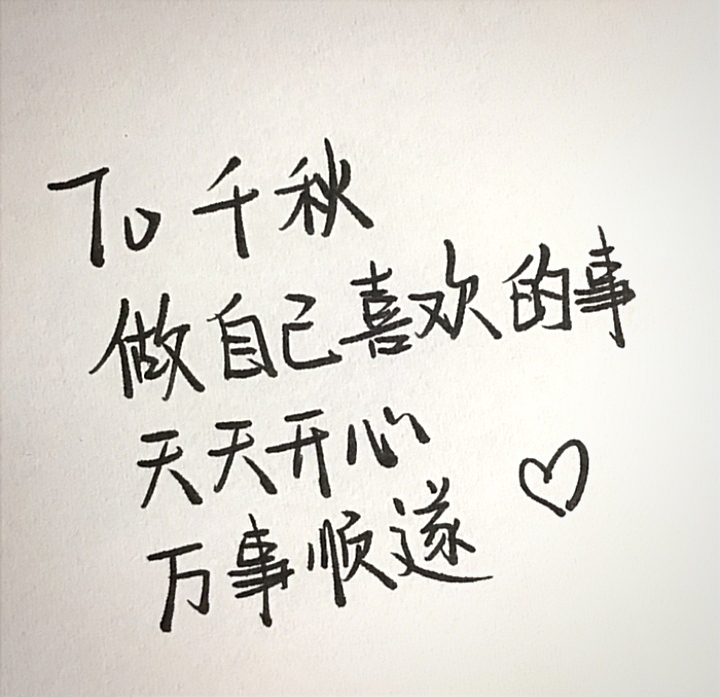 To 千秋
做自己喜欢的事
天天开心
万事顺遂